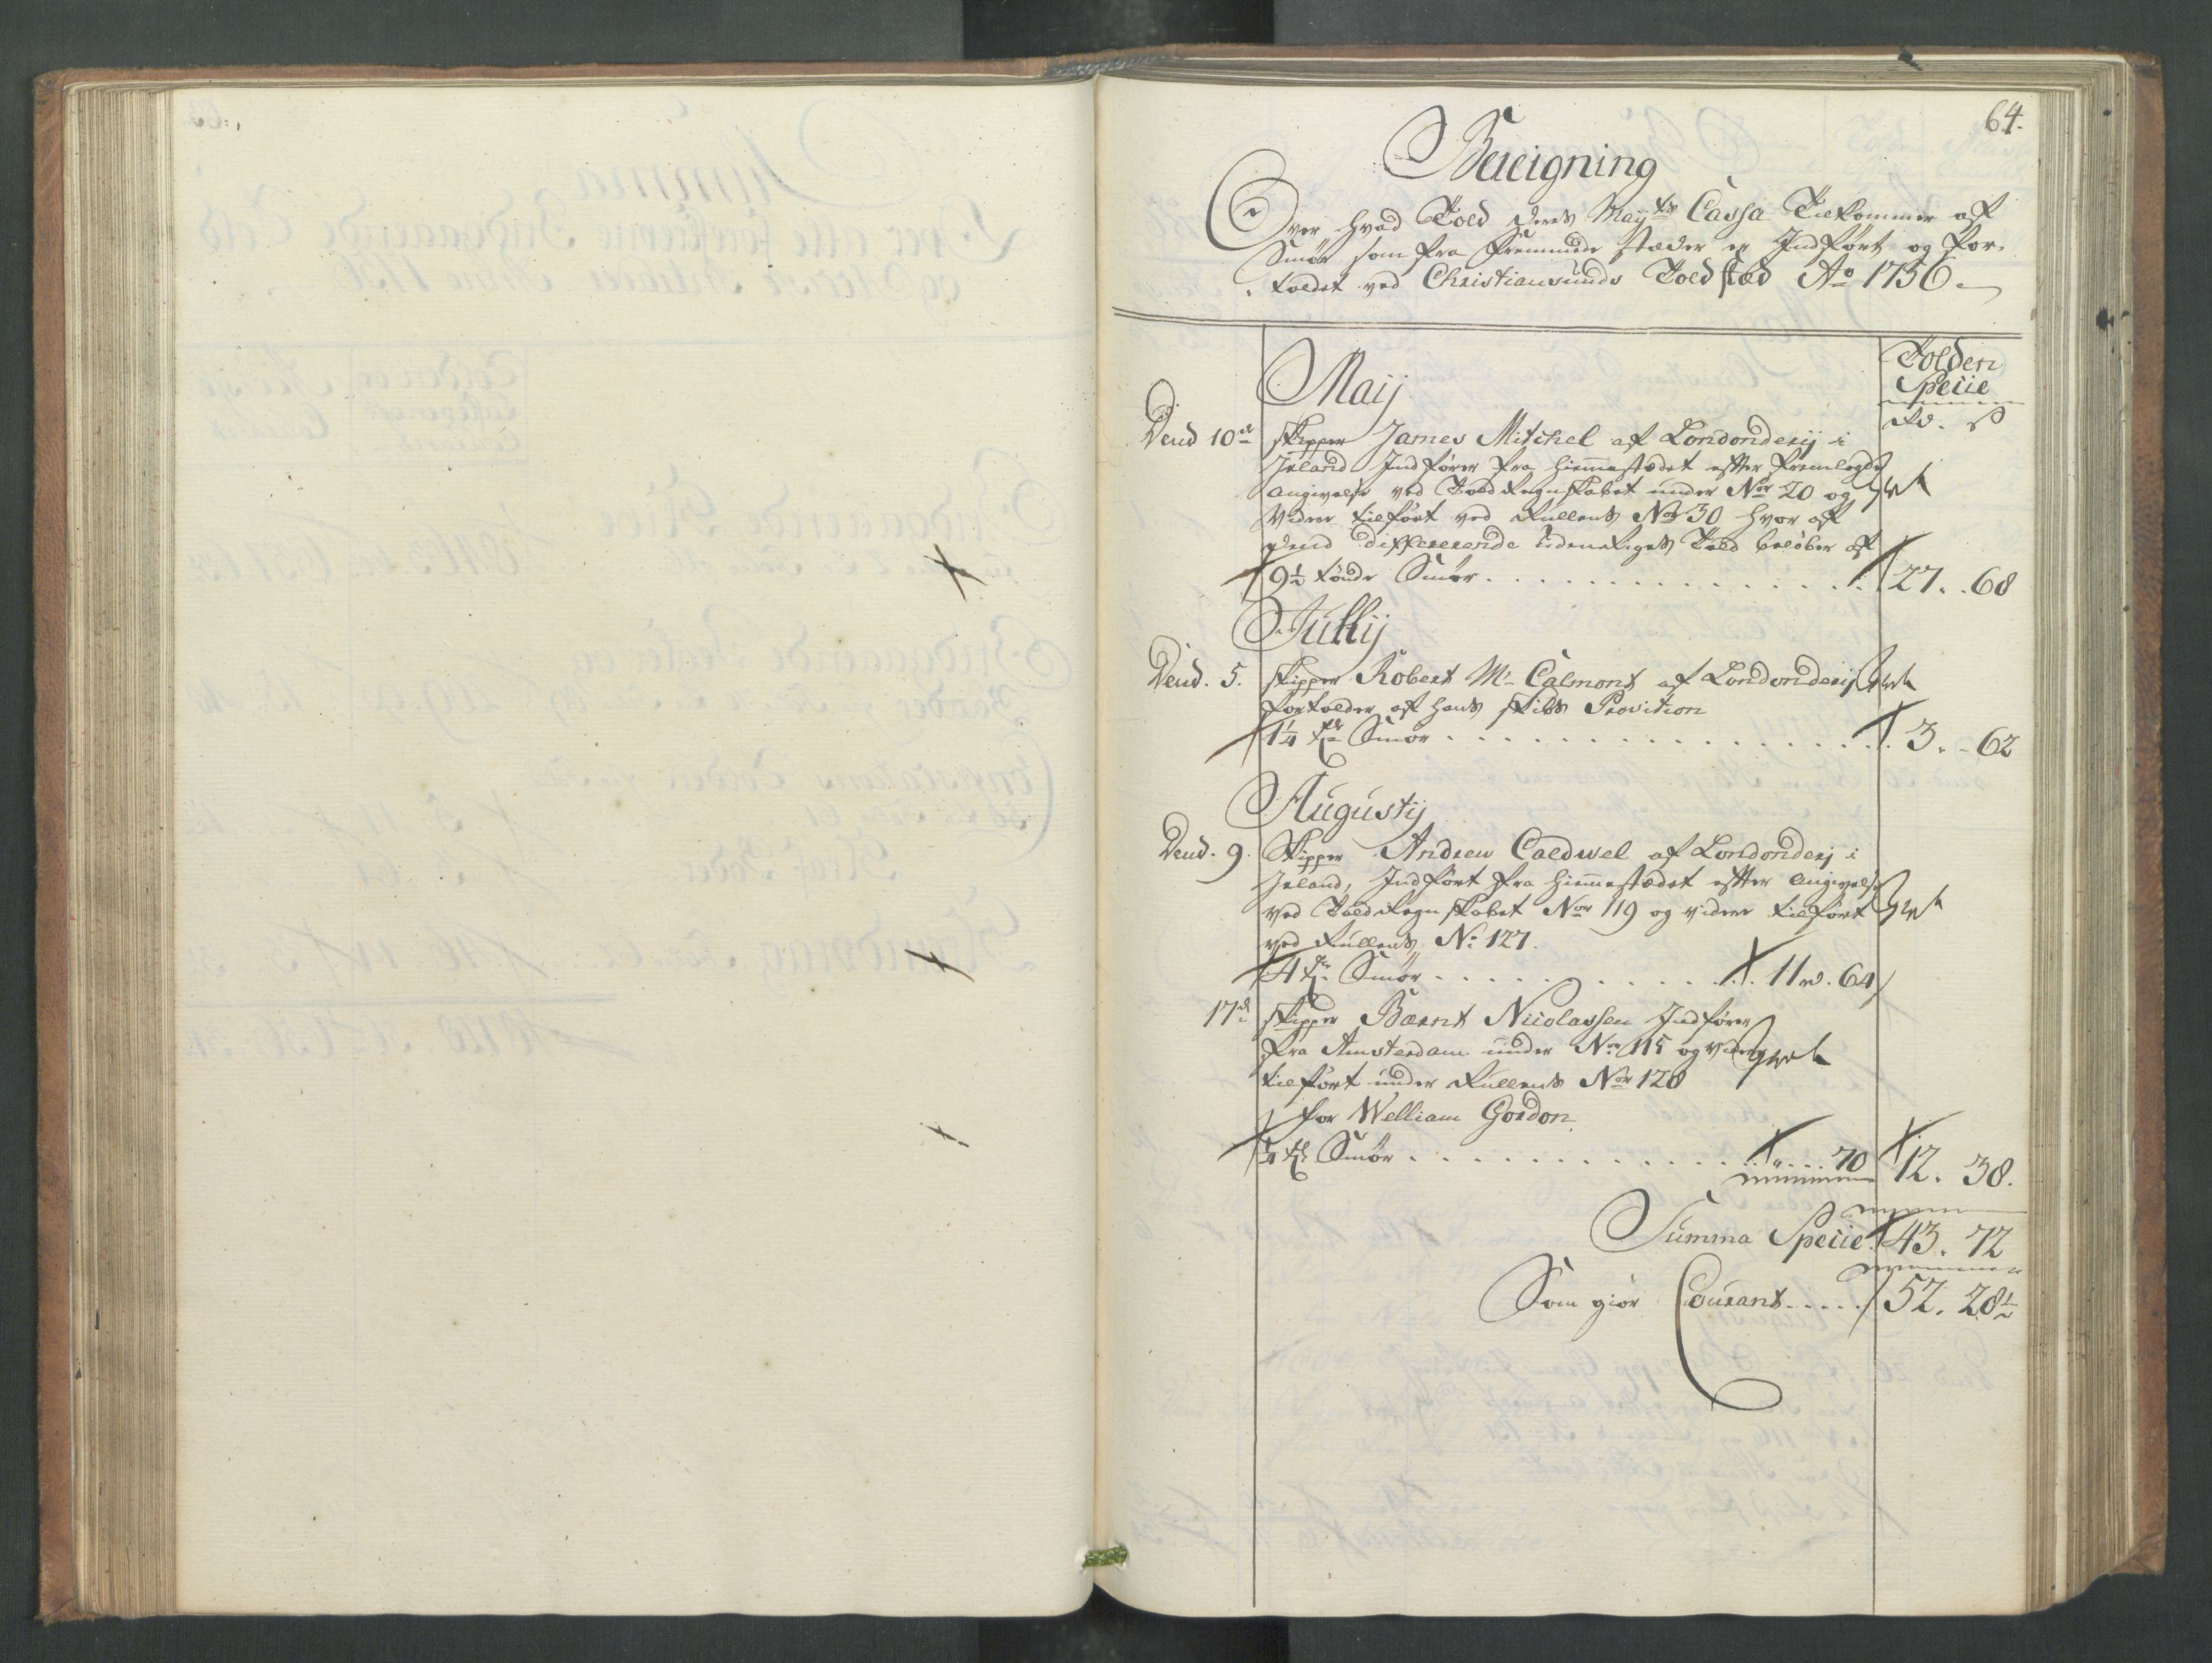 64.
Bereigning
Over hvad Told deres May:ts Cassa Tilkommer af
Smør som fra fremmede stæder er Indført og for-
toldet ved Christiansunds Toldsted Ao 1756.
Tolden
Specie
Rd. s
Maij
Dend 10de skipper James Mitchel af Londonderij i
Irland Indfører fra hiemmestædet efter fremlagde
angivelse ved Toldregnskabet under Nor 20 og
Videre tilført ved Rullens Nor 30 hvor af
dend differerende udenrigs Told beløber af
9½ tønde Smør . . . 27. 68
Jullij
Dend. 5. skipper Robert Mc Calmont af Londonderij
fortolder af hans skibs Provition
1¼ tde Smør . . . 3. 62
Augustij
Dend. 9. Skipper Andrew Caldwel af Londonderj i
Irland, Indført fra hiemmestædet efter angivelse
ved Toldregnskabet Nor 119 og videre tilført
ved Rullens No 127.
4 tr Smør . . . 11 rd. 64
17de skipper Bærnt Nicolassen Indfører
fra Amsterdam under Nor 115 og videre
tilført under Rullens Nor 128
for William Gordon
¼ td Smør . . . " . . 70 12. 38.
Summa Specie 43. 72
Som giør Courant . . . . . 52. 28½